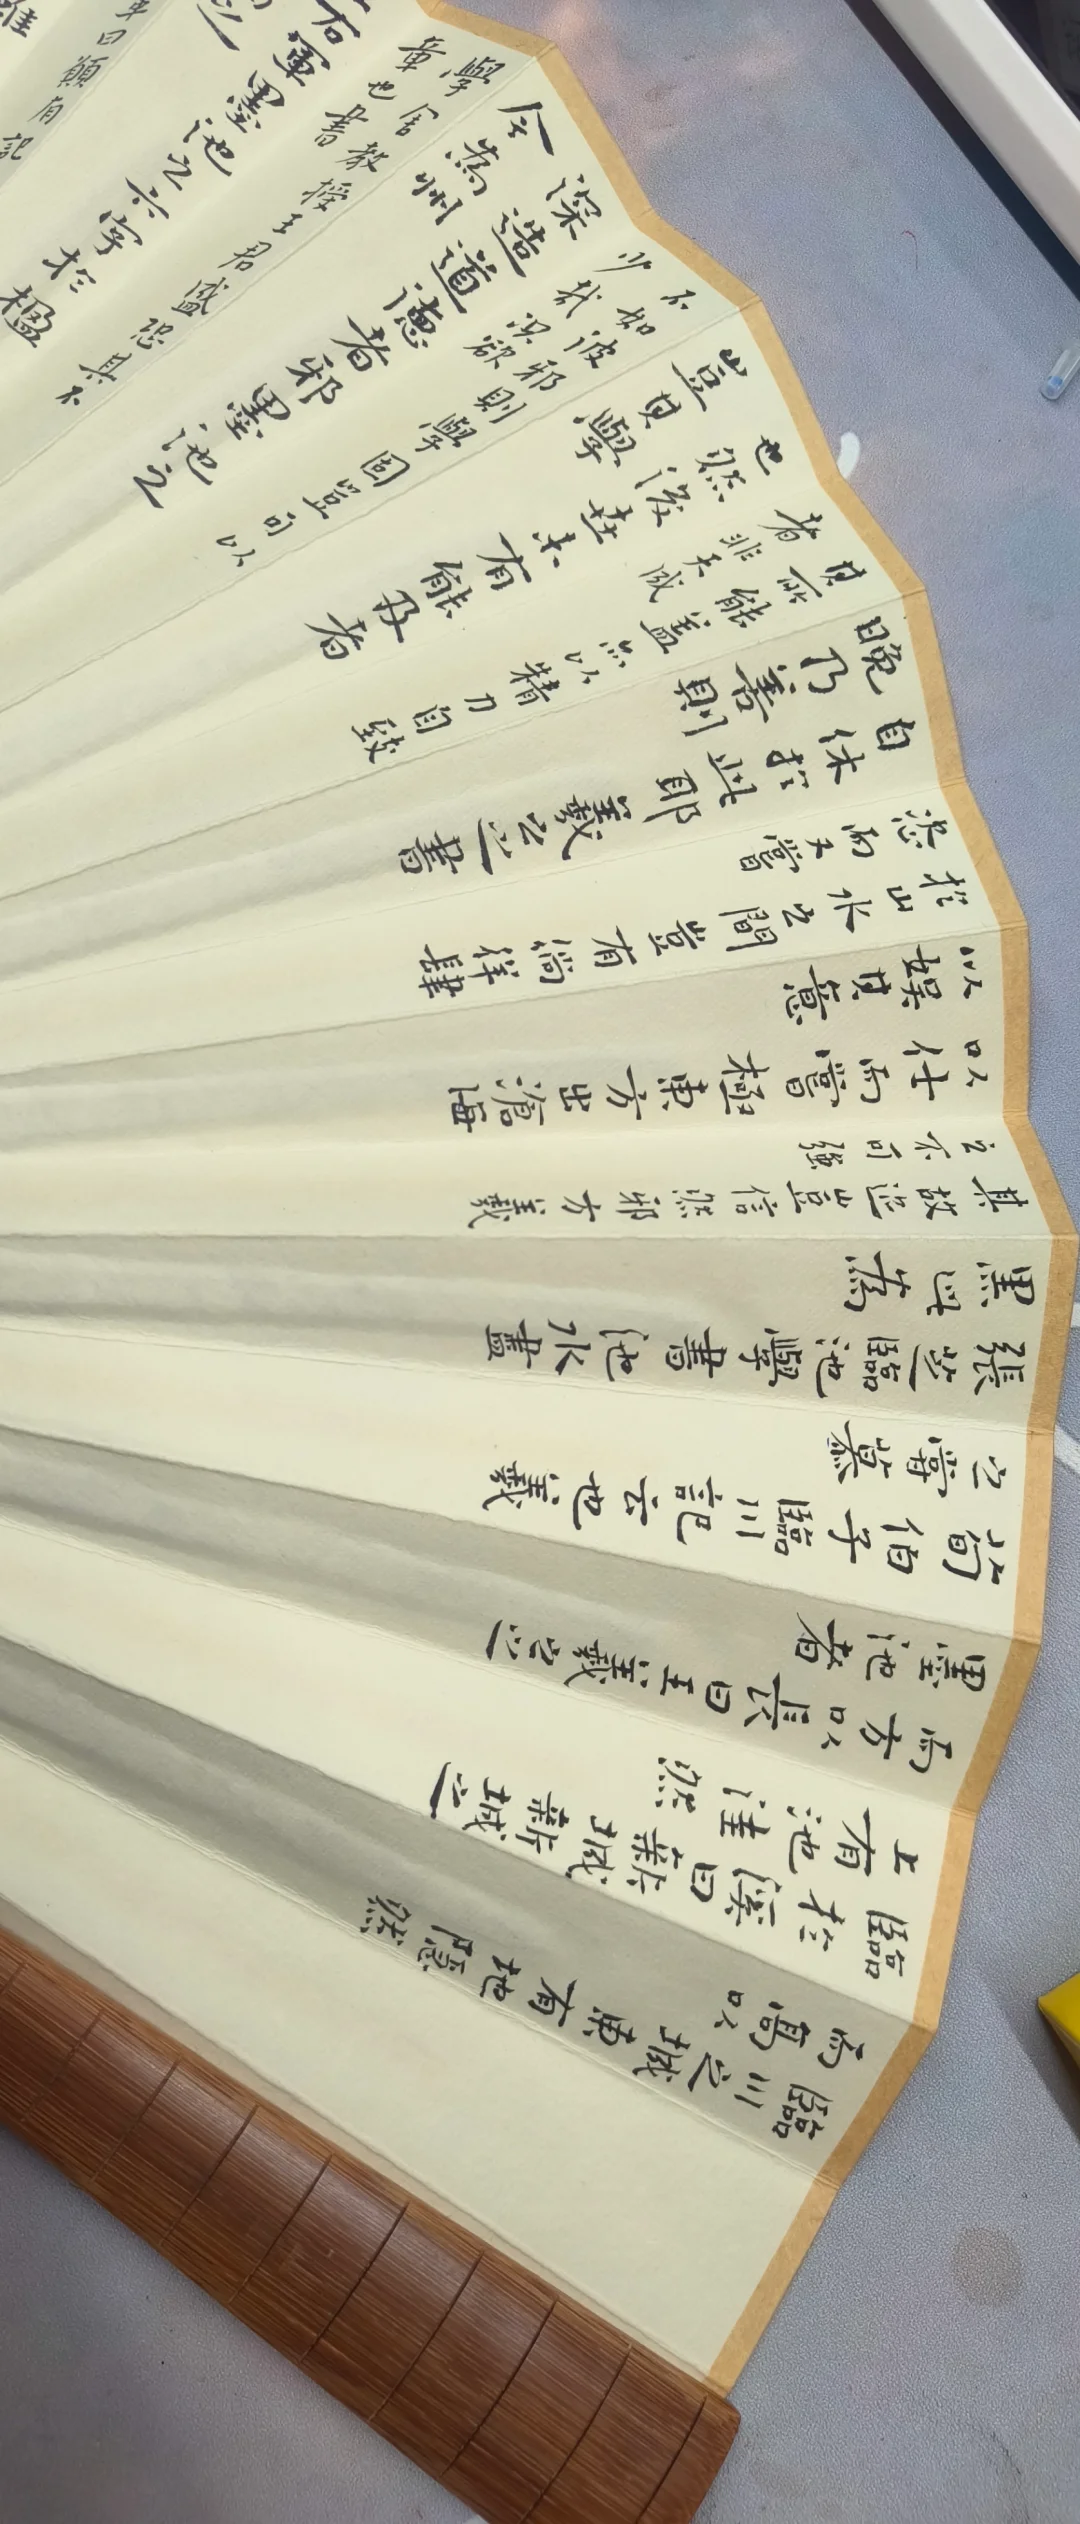 臨川之城東有地隱然
而高以
臨於溪曰新城新城之
上有池洼然
而方以長曰王羲之之
墨池者
荀伯子臨川記云也羲
之嘗慕
張芝臨池學書池水盡
黑此為
其故迹豈信然邪方羲
之不可強
以仕而嘗極東方出滄海
以娛其意
於山水之間豈有徜徉肆
恣而又嘗
自休於此耶羲之書
晚乃善則
其所能蓋亦以精力自致
者非天成
也然後世未有能及者
豈其學
不如彼邪則學固豈可以
少哉況欲
深造道德者邪墨池之
今為州
學舍教授王君盛恐其不
章也書
右軍墨池之六字於楹
之
曰願有記